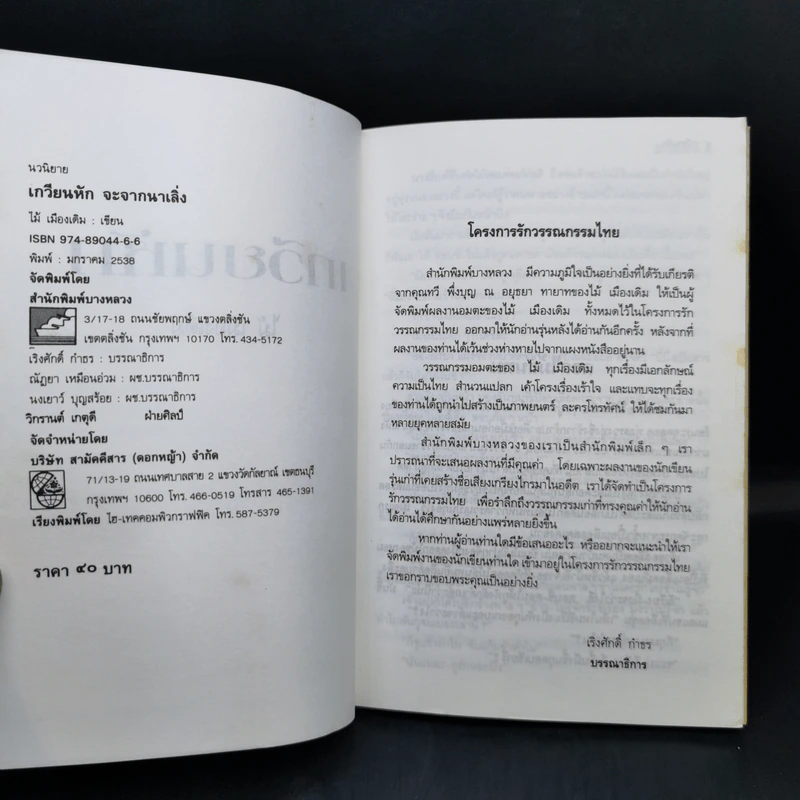 นวนิยาย
เกวียนหัก จะจากนาเลิ่ง
ไม้ เมืองเดิม : เขียน
ISBN 974-89044-6-6
พิมพ์ : มกราคม 2538
จัดพิมพ์โดย
สำนักพิมพ์บางหลวง
3/17-18 ถนนชัยพฤกษ์ แขวงตลิ่งชัน
เขตตลิ่งชัน กรุงเทพฯ 10170 โทร. 434-5172
เริงศักดิ์ กำธร : บรรณาธิการ
ณัฏยา เหมือนอ่วม : ผช.บรรณาธิการ
นงเยาว์ บุญสร้อย : ผช.บรรณาธิการ
วิกรานต์ เกตุดี ฝ่ายศิลป์
จัดจำหน่ายโดย
บริษัท สามัคคีสาร (ดอกหญ้า) จำกัด
71/13-19 ถนนเทศบาลสาย 2 แขวงวัดกัลยาณ์ เขตธนบุรี
กรุงเทพฯ 10600 โทร. 466-0519 โทรสาร 465-1391
เรียงพิมพ์โดย ไฮ-เทคคอมพิวกราฟฟิค โทร. 587-5379
ราคา ๔๐ บาท
โครงการรักวรรณกรรมไทย
สำนักพิมพ์บางหลวง มีความภูมิใจเป็นอย่างยิ่งที่ได้รับเกียรติ
จากคุณทวี พึ่งบุญ ณ อยุธยา ทายาทของไม้ เมืองเดิม ให้เป็นผู้
จัดพิมพ์ผลงานอมตะของไม้ เมืองเดิม ทั้งหมดไว้ในโครงการรัก
วรรณกรรมไทย ออกมาให้นักอ่านรุ่นหลังได้อ่านกันอีกครั้ง หลังจากที่
ผลงานของท่านได้เว้นช่วงห่างหายไปจากแผงหนังสืออยู่นาน
วรรณกรรมอมตะของ ไม้ เมืองเดิม ทุกเรื่องมีเอกลักษณ์
ความเป็นไทย สำนวนแปลก เค้าโครงเรื่องเร้าใจ และแทบจะทุกเรื่อง
ของท่านได้ถูกนำไปสร้างเป็นภาพยนตร์ ละครโทรทัศน์ ให้ได้ชมกันมา
หลายยุคหลายสมัย
สำนักพิมพ์บางหลวงของเราเป็นสำนักพิมพ์เล็ก ๆ เรา
ปรารถนาที่จะเสนอผลงานที่มีคุณค่า โดยเฉพาะผลงานของนักเขียน
รุ่นเก่าที่เคยสร้างชื่อเสียงเกรียงไกรมาในอดีต เราได้จัดทำเป็นโครงการ
รักวรรณกรรมไทย เพื่อรำลึกถึงวรรณกรรมเก่าที่ทรงคุณค่าให้นักอ่าน
ได้อ่านได้ศึกษากันอย่างแพร่หลายยิ่งขึ้น
หากท่านผู้อ่านท่านใดมีข้อเสนออะไร หรืออยากจะแนะนำให้เรา
จัดพิมพ์งานของนักเขียนท่านใด เข้ามาอยู่ในโครงการรักวรรณกรรมไทย
เราขอกราบขอบพระคุณเป็นอย่างยิ่ง
เริงศักดิ์ กำธร
บรรณาธิการ